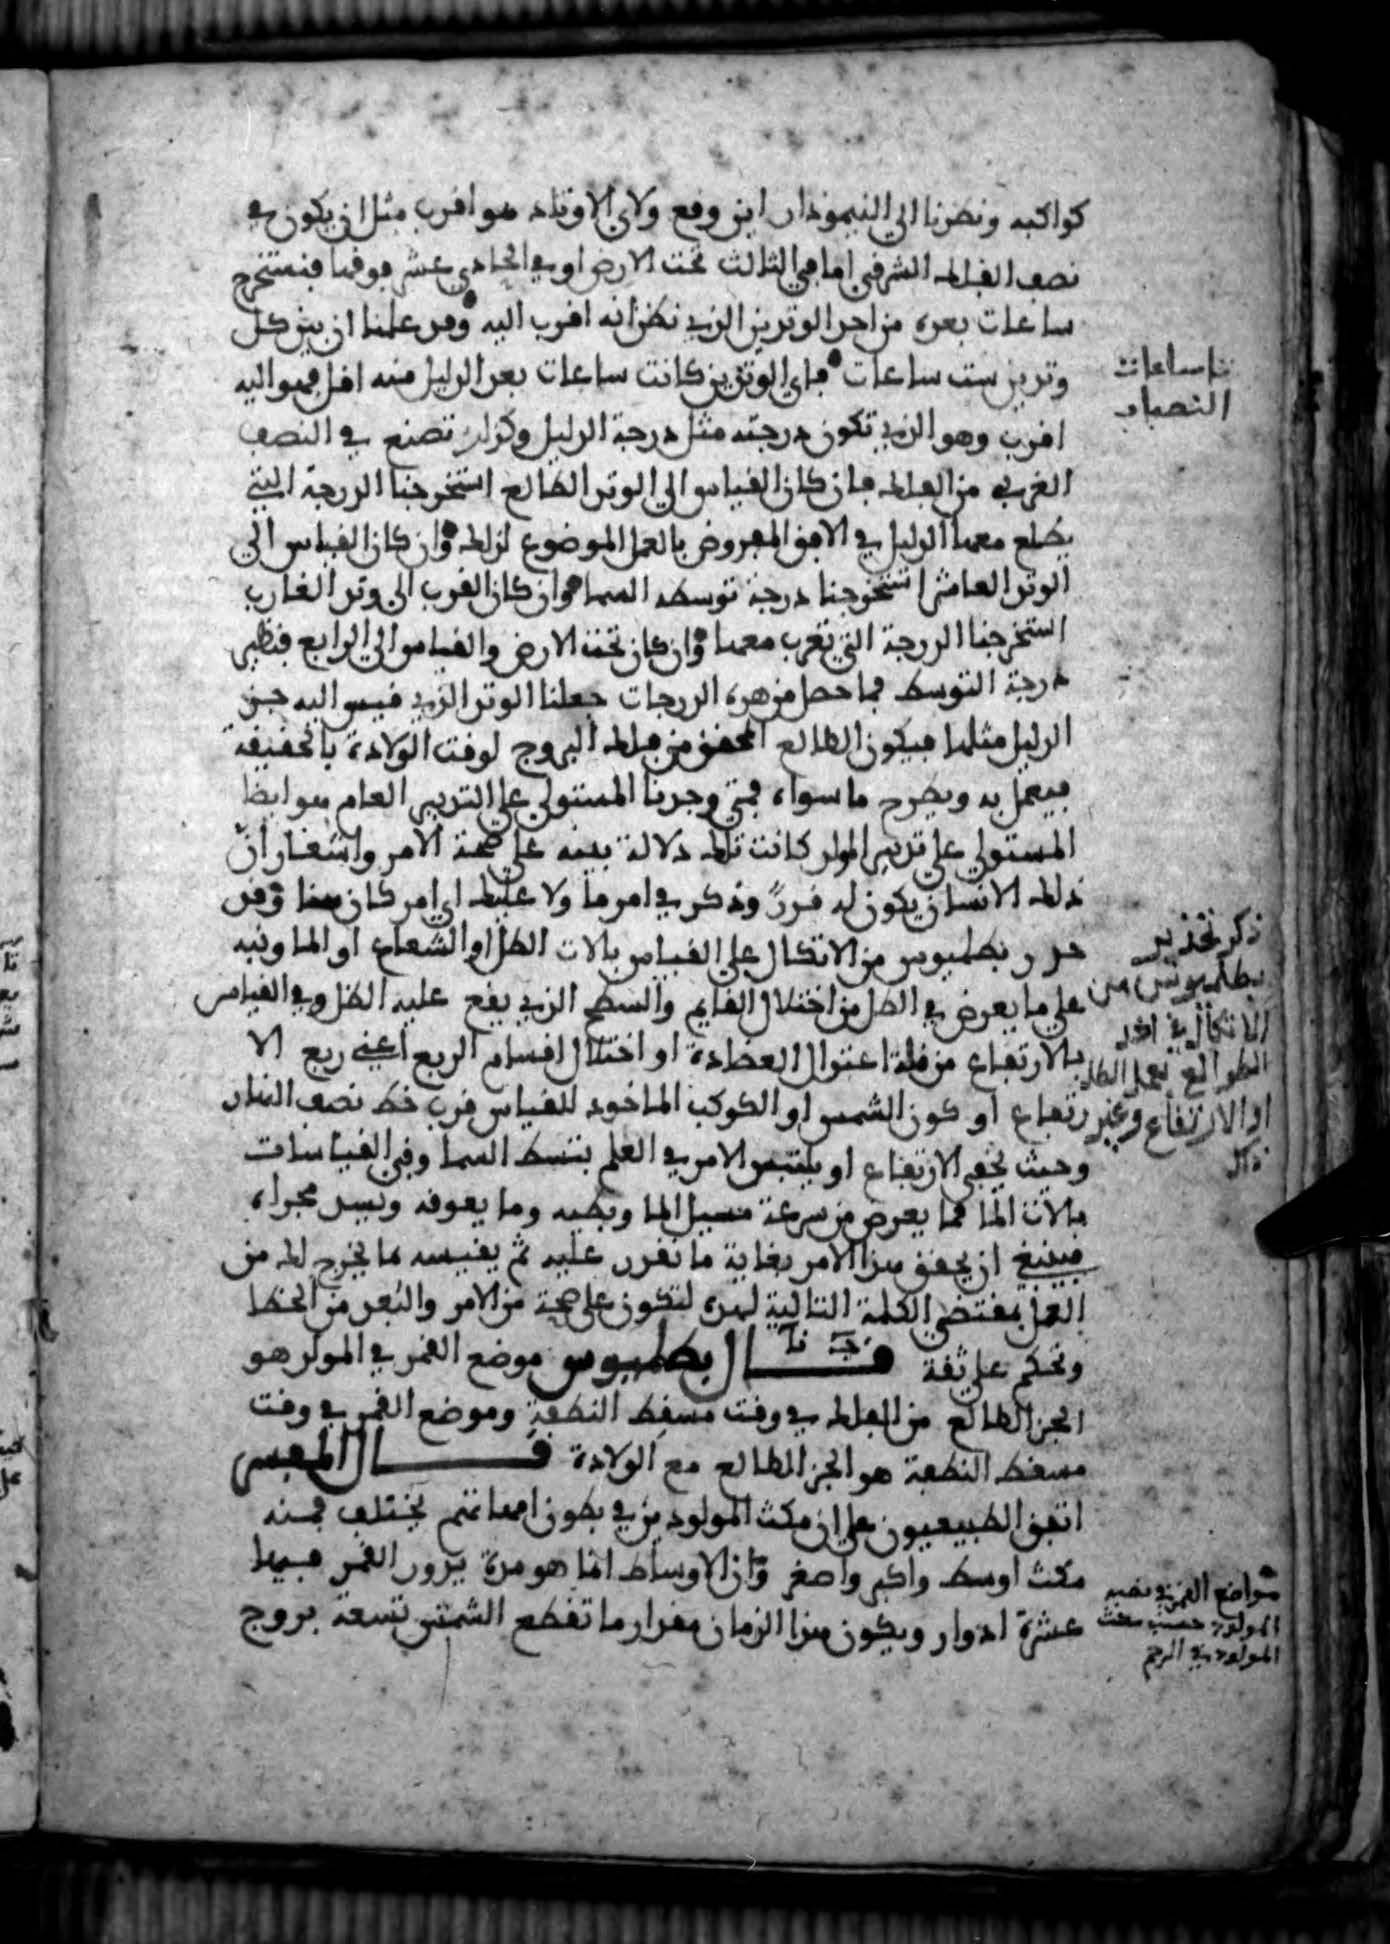 كواكبه ونظرنا الى النيموذار اين وقع ولاي الاوتاد هو اقرب مثل ان يكون في
نصف الفلك الشرقي اما في الثالث تحت الارض او في الحادي عشر فوقها فنستخرج
ساعات بعده من احد الوتدين الذي نظن انه اقرب اليه وقد علمنا ان بين كل
وتدين ست ساعات فاي الوتدين كانت ساعات بعد الدليل منه اقل فهو اليه
اقرب وهو الذي تكون درجته مثل درجة الدليل وكذلك تصنع في النصف
الغربي من الفلك فان كان القياس الى الوتد الطالع استخرجنا الدرجة التي
يطلع معها الدليل في الافق المفروض بالعمل الموضوع لذلك وان كان القياس الى
الوتد العاشر استخرجنا درجة توسطه السما وان كان القرب الى وتد الغارب
استخرجنا الدرجة التي تغرب معها وان كان تحت الارض والقياس الى الرابع فنظير
درجة التوسط فما حصل من هذه الدرجات جعلنا الوتد الذي قيس اليه جزء
الدليل مثلها فيكون الطالع المحقق من فلك البروج لوقت الولادة بالحقيقة
فيعمل به ويطرح ما سواه فمتى وجدنا المستولي على التدبير العام هو ايضا
المستولي على تدبير المولد كانت تلك دلالة بينه على صحة الامر واشعار ان
ذلك الانسان يكون له قدرٌ وذكر في امر ما ولا عليك اي امر كان هنا وقد
حذر بطلميوس من الاتكال على القياس بالات الظل او الشعاع او الما ونبه
على ما يعرض في الظل من اختلال القايم والسطح الذي يقع عليه الظل وفي القياس
بالارتفاع من قلة اعتدال العضادة او اختلال اقسام الربع اعني ربع الا
رتفاع او كون الشمس او الكوكب الماخوذ للقياس قرب خط نصف النهار
وحيث يخفى الارتفاع او يلتبس الامر في العلم بتوسط السما وفي القياسات
بالات الما مما يعرض من سرعة مسيل الما وبطيه وما يعوقه ويسد مجراه
فينبغي ان يحقق هذا الامر بغاية ما نقدر عليه ثم يقيسه بما يخرج له من
العمل بمقتضى الكلمة التالية لهذه لتكون على صحة من الامر والبعد من الخطا
وتحكم على ثقة قـــال بطلميوس موضع القمر في المولد هو
الجز الطالع من الفلك في وقت مسقط النطفة وموضع القمر في وقت
مسقط النطفة هو الجز الطالع مع الولادة قـــال المفسر
اتفق الطبيعيون على ان مكث المولودين في بطون امهاتهم يختلف فمنه
مكث اوسط واكبر واصغر وان الاوساط انما هو مدة يدور القمر فيها
عشرة ادوار ويكون هذا الزمان مقدار ما تقطع الشمس تسعة بروج
ذكر تحذير
بطلميوس من
الاتكال في اخذ
الطوالع بعمل الظل
او الارتفاع وغير
ذلك
مواضع القمر في نصبة
المولود حسب مكث
المولود في الرحم